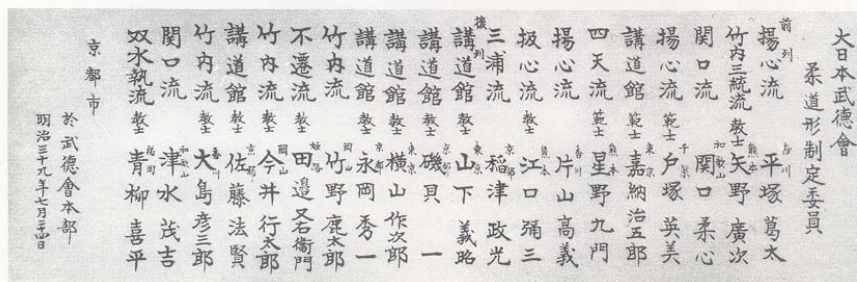 大日本武德會
柔道形制定委員
前列
揚心流 香川 平塚葛太
竹内三統流 教士 熊本 矢野廣次
関口流 和歌山 関口柔心
揚心流 範士 千葉 戸塚英美
講道館 範士 東京 嘉納治五郎
四天流 範士 熊本 星野九門
揚心流 香川 片山高義
扱心流 教士 熊本 江口彌三
三浦流 京都 稲津政光
後列
講道館 教士 東京 山下義韶
講道館 教士 京都 磯貝一
講道館 教士 東京 横山作次郎
講道館 教士 京都 永岡秀一
竹内流 岡山 竹野鹿太郎
不遷流 教士 姫路 田邉又右衞門
竹内流 教士 岡山 今井行太郎
講道館 教士 京都 佐藤法賢
竹内流 教士 香川 大島彦三郎
関口流 和歌山 津水茂吉
双水執流 教士 福岡 青柳喜平
京都市
於武德會本部
明治三十九年七月二十四日